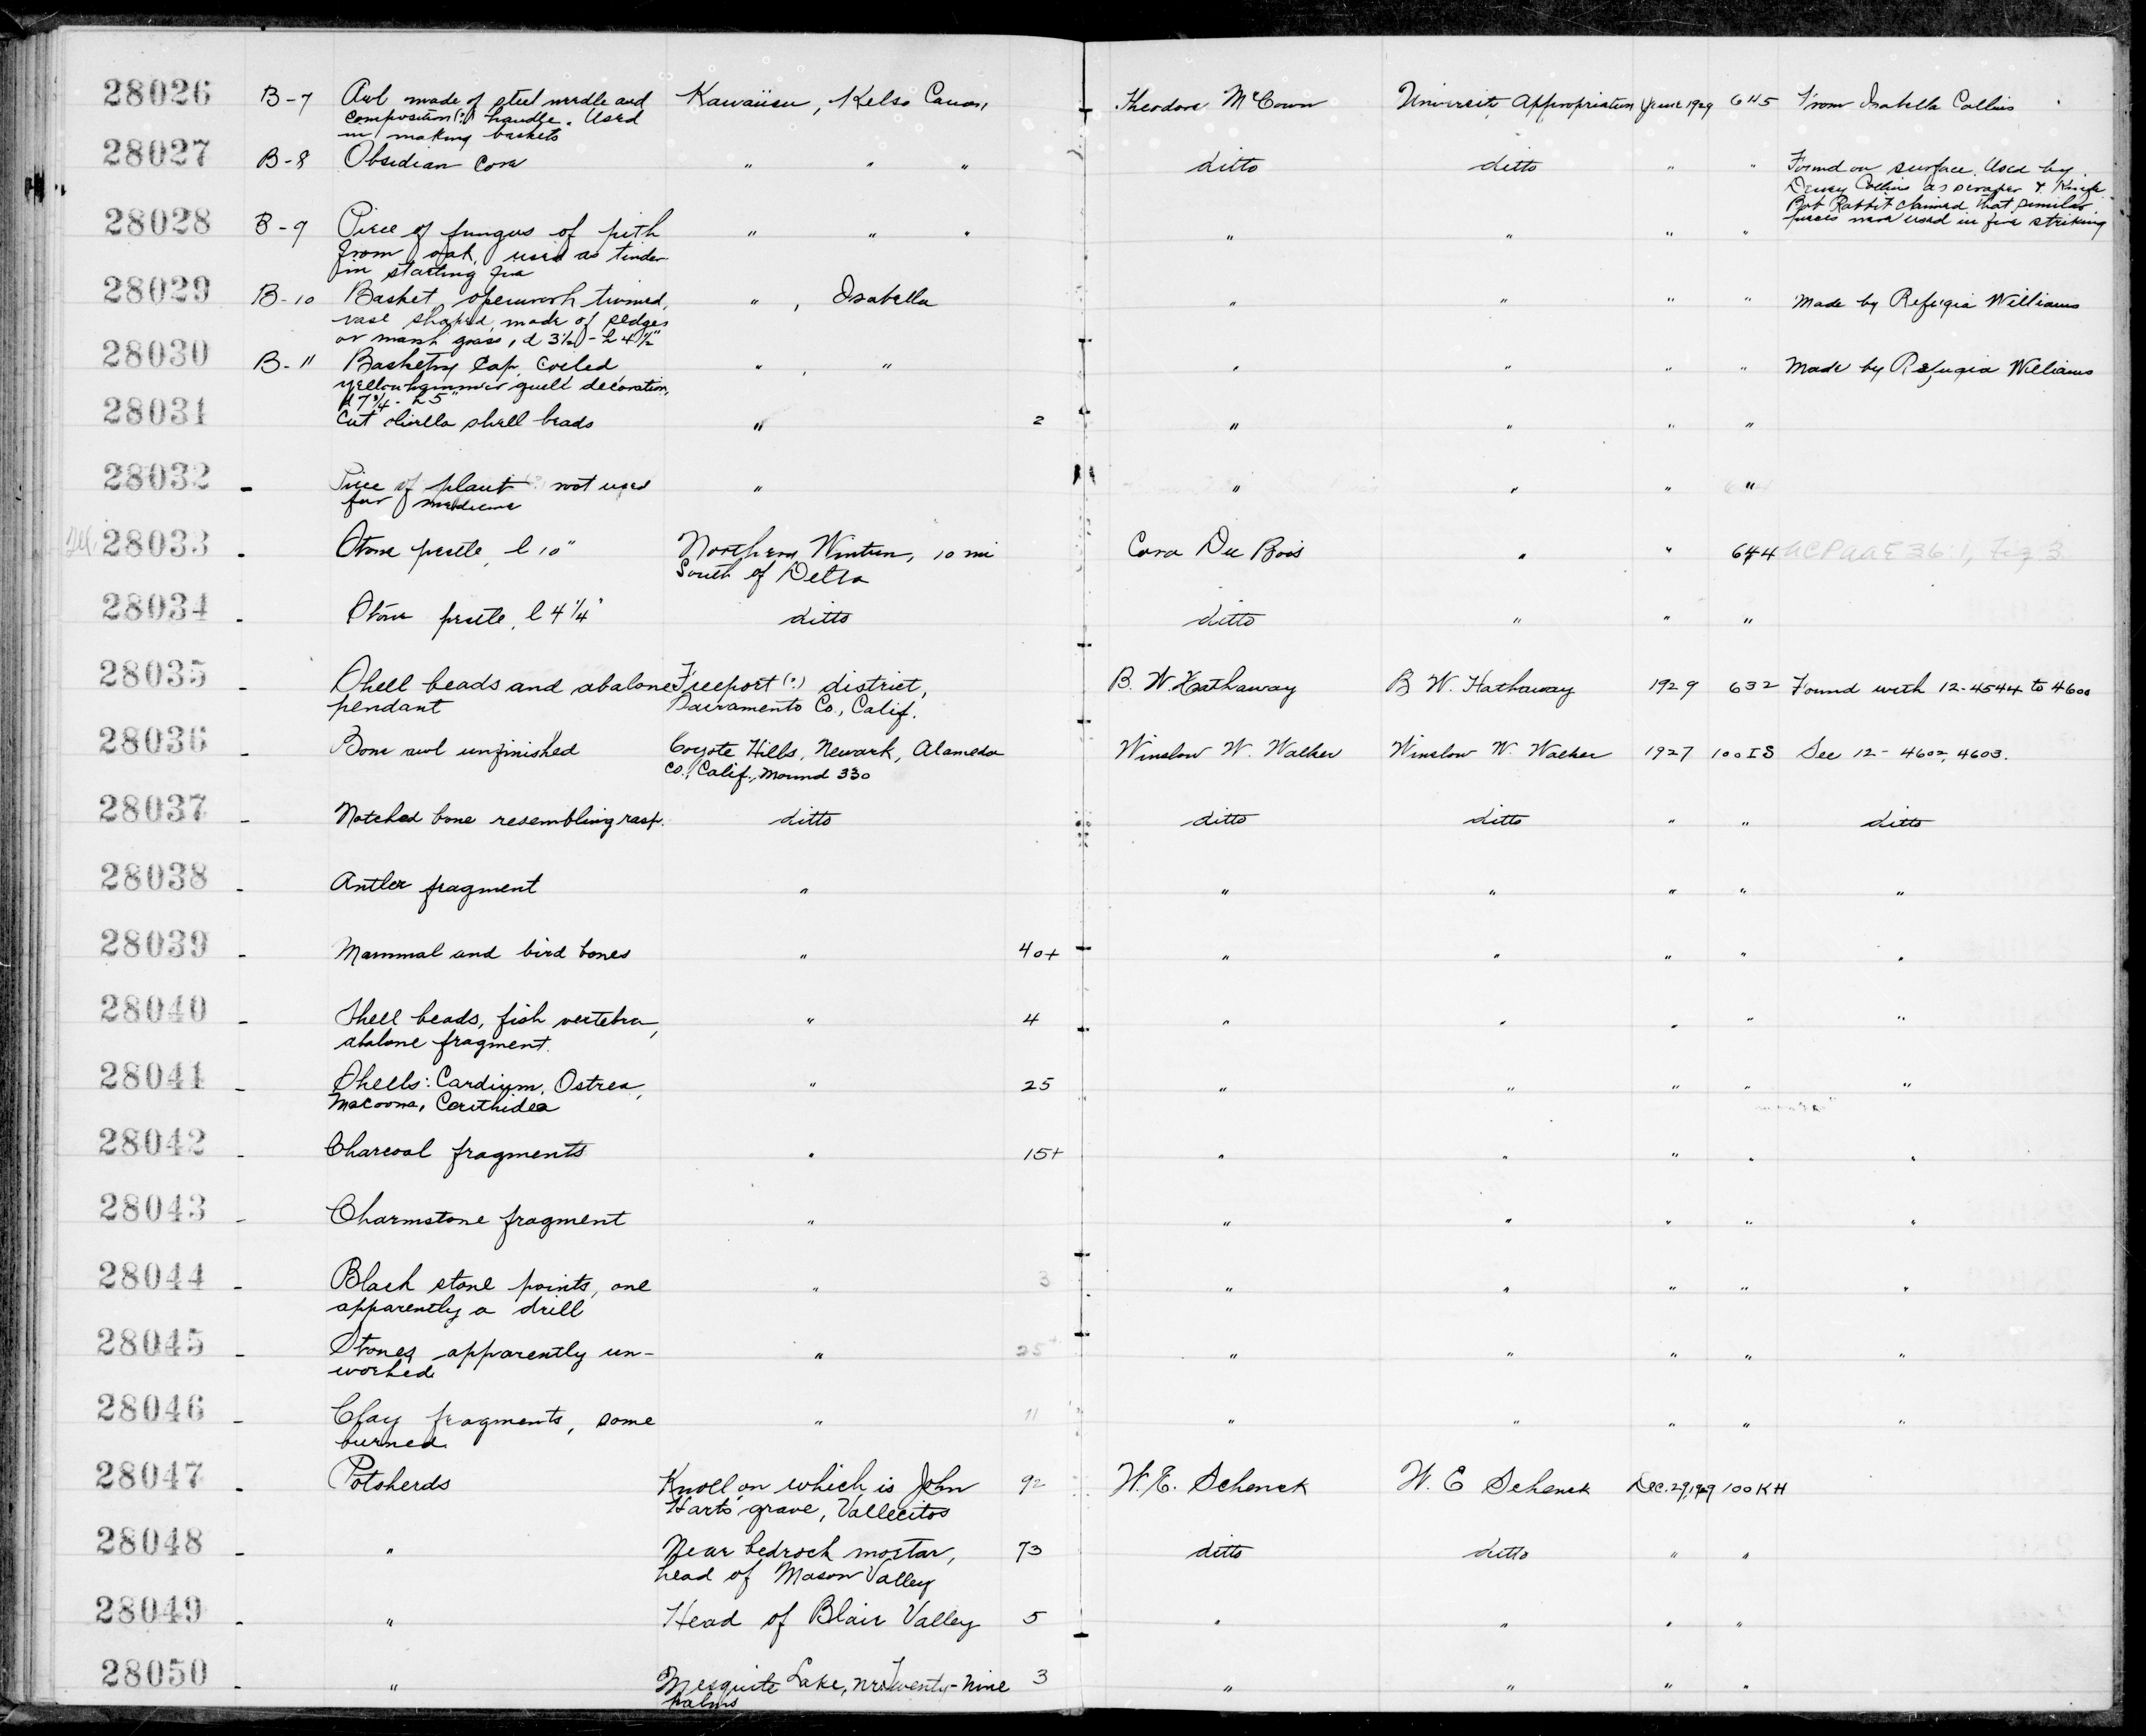 28026 B-7 Awl made of steel needle and Kawaiisu, Kelso Canon, Theodore McCown University Appropriation June 1929 645 From Isabella Collins
composition(?) handle. Used
in making baskets
28027 B-8 Obsidian core " " " ditto ditto " " Found on surface. Used by
Dewey Collins as scraper & knife
Bob Rabbit claimed that similar
pieces were used in fire striking
28028 B-9 Piece of fungus of pith " " " " " " "
from oak, used as tinder
in starting fire
28029 B-10 Basket, openwork twined, " , Isabella " " " " Made by Refugia Williams
vase shaped, made of sedges
or marsh grass, d 3½ - h 4½"
28030 B-11 Basketry cap, coiled " , " " " " " Made by Refugia Williams
yellowhammer quill decoration,
d 7¾ - h 5"
28031 Cut olivella shell beads " 2 " " " "
28032 - Piece of plant (?) root used " " " " "
for medicine
28033 - Stone pestle, l 10" Northern Wintun, 10 mi Cora Du Bois " " 644 UCPAAE 36:1, Fig 3
South of Delta
28034 - Stone pestle, l 4¼" ditto ditto " " "
28035 Shell beads and abalone Freeport (?) district, B. W. Hathaway B W. Hathaway 1929 632 Found with 12-4544 to 4600
pendant Sacramento Co., Calif.
28036 - Bone awl unfinished Coyote Hills, Newark, Alameda Winslow W. Walker Winslow W. Walker 1927 100IS See 12-4602, 4603.
Co., Calif., Mound 330
28037 - Notched bone resembling rasp. ditto ditto ditto " " ditto
28038 - Antler fragment " " " " " "
28039 - Mammal and bird bones " 40+ " " " " "
28040 - Shell beads, fish vertebra, " 4 " " " " "
abalone fragment.
28041 - Shells: Cardium, Ostrea, " 25 " " " " "
Macoma, Cerithidea
28042 - Charcoal fragments " 15+ " " " " "
28043 - Charmstone fragment " " " " " "
28044 - Black stone points, one " 3 " " " " "
apparently a drill
28045 - Stones apparently un- " 25+ " " " " "
worked
28046 - Clay fragments, some " 11 " " " " "
burned
28047 - Potsherds Knoll on which is John 92 W. E. Schenck W. E Schenck Dec. 29, 1929 100KH
Hart's grave, Vallecitos
28048 - " Near bedrock mortar, 73 ditto ditto " "
head of Mason Valley
28049 - " Head of Blair Valley 5 " " " "
28050 - " Mesquite Lake, nr. Twenty-Nine 3 " " " "
Palms